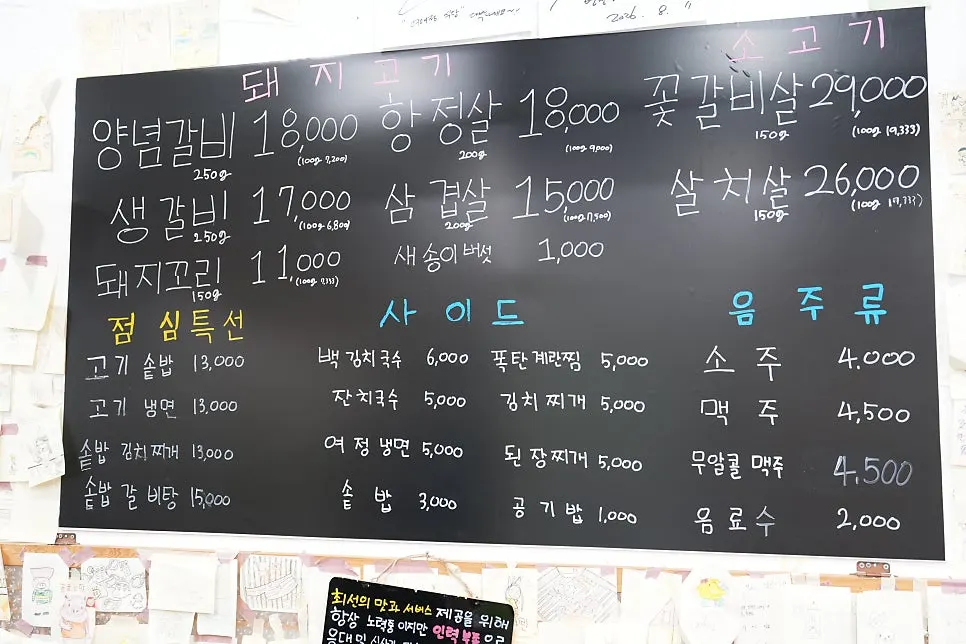 2026. 8. 11
돼지고기
양념갈비 18,000
250g (100g 7,200)
생갈비 17,000
250g (100g 6,800)
돼지꼬리 11,000
150g (100g 7,333)
항정살 18,000
200g (100g 9,000)
삼겹살 15,000
200g (100g 7,500)
새송이버섯 1,000
소고기
꽃갈비살 29,000
150g (100g 19,333)
살치살 26,000
150g (100g 17,333)
점심특선
고기 솥밥 13,000
고기 냉면 13,000
솥밥 김치찌개 13,000
솥밥 갈비탕 15,000
사이드
백김치국수 6,000
잔치국수 5,000
여정냉면 5,000
솥밥 3,000
폭탄계란찜 5,000
김치찌개 5,000
된장찌개 5,000
공기밥 1,000
음주류
소주 4.000
맥주 4,500
무알콜 맥주 4.500
음료수 2,000
최선의 맛과 서비스 제공을 위해
항상 노력중 이지만 인력 부족으로